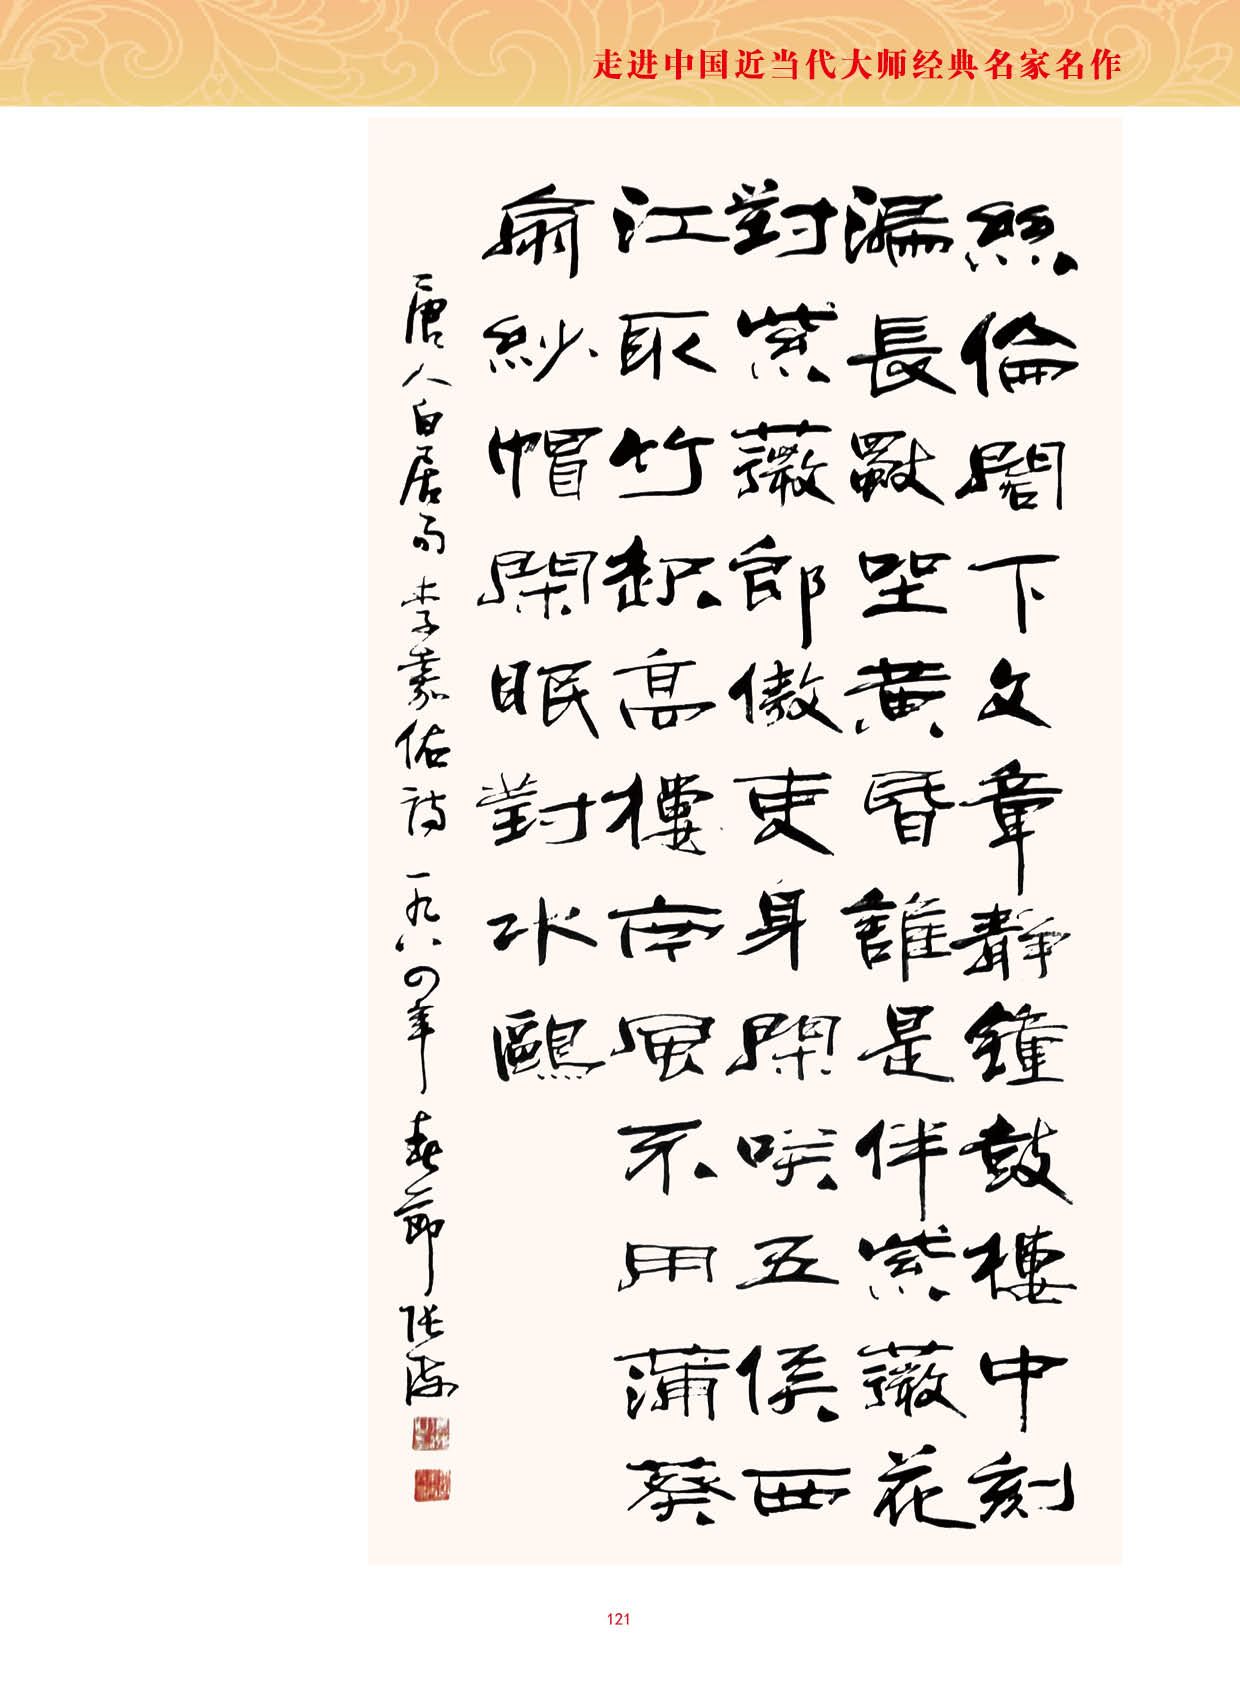 走进中国近当代大师经典名家名作
絲倫閣下文章靜鐘鼓樓中刻
漏長獨坐黃昏誰是伴紫薇花
對紫薇郎傲吏身閑咲五侯西
江取竹起高樓南風不用蒲葵
扇紗帽閑眠對水鷗
唐人白居易李嘉佑詩一九八四年春節張海
121